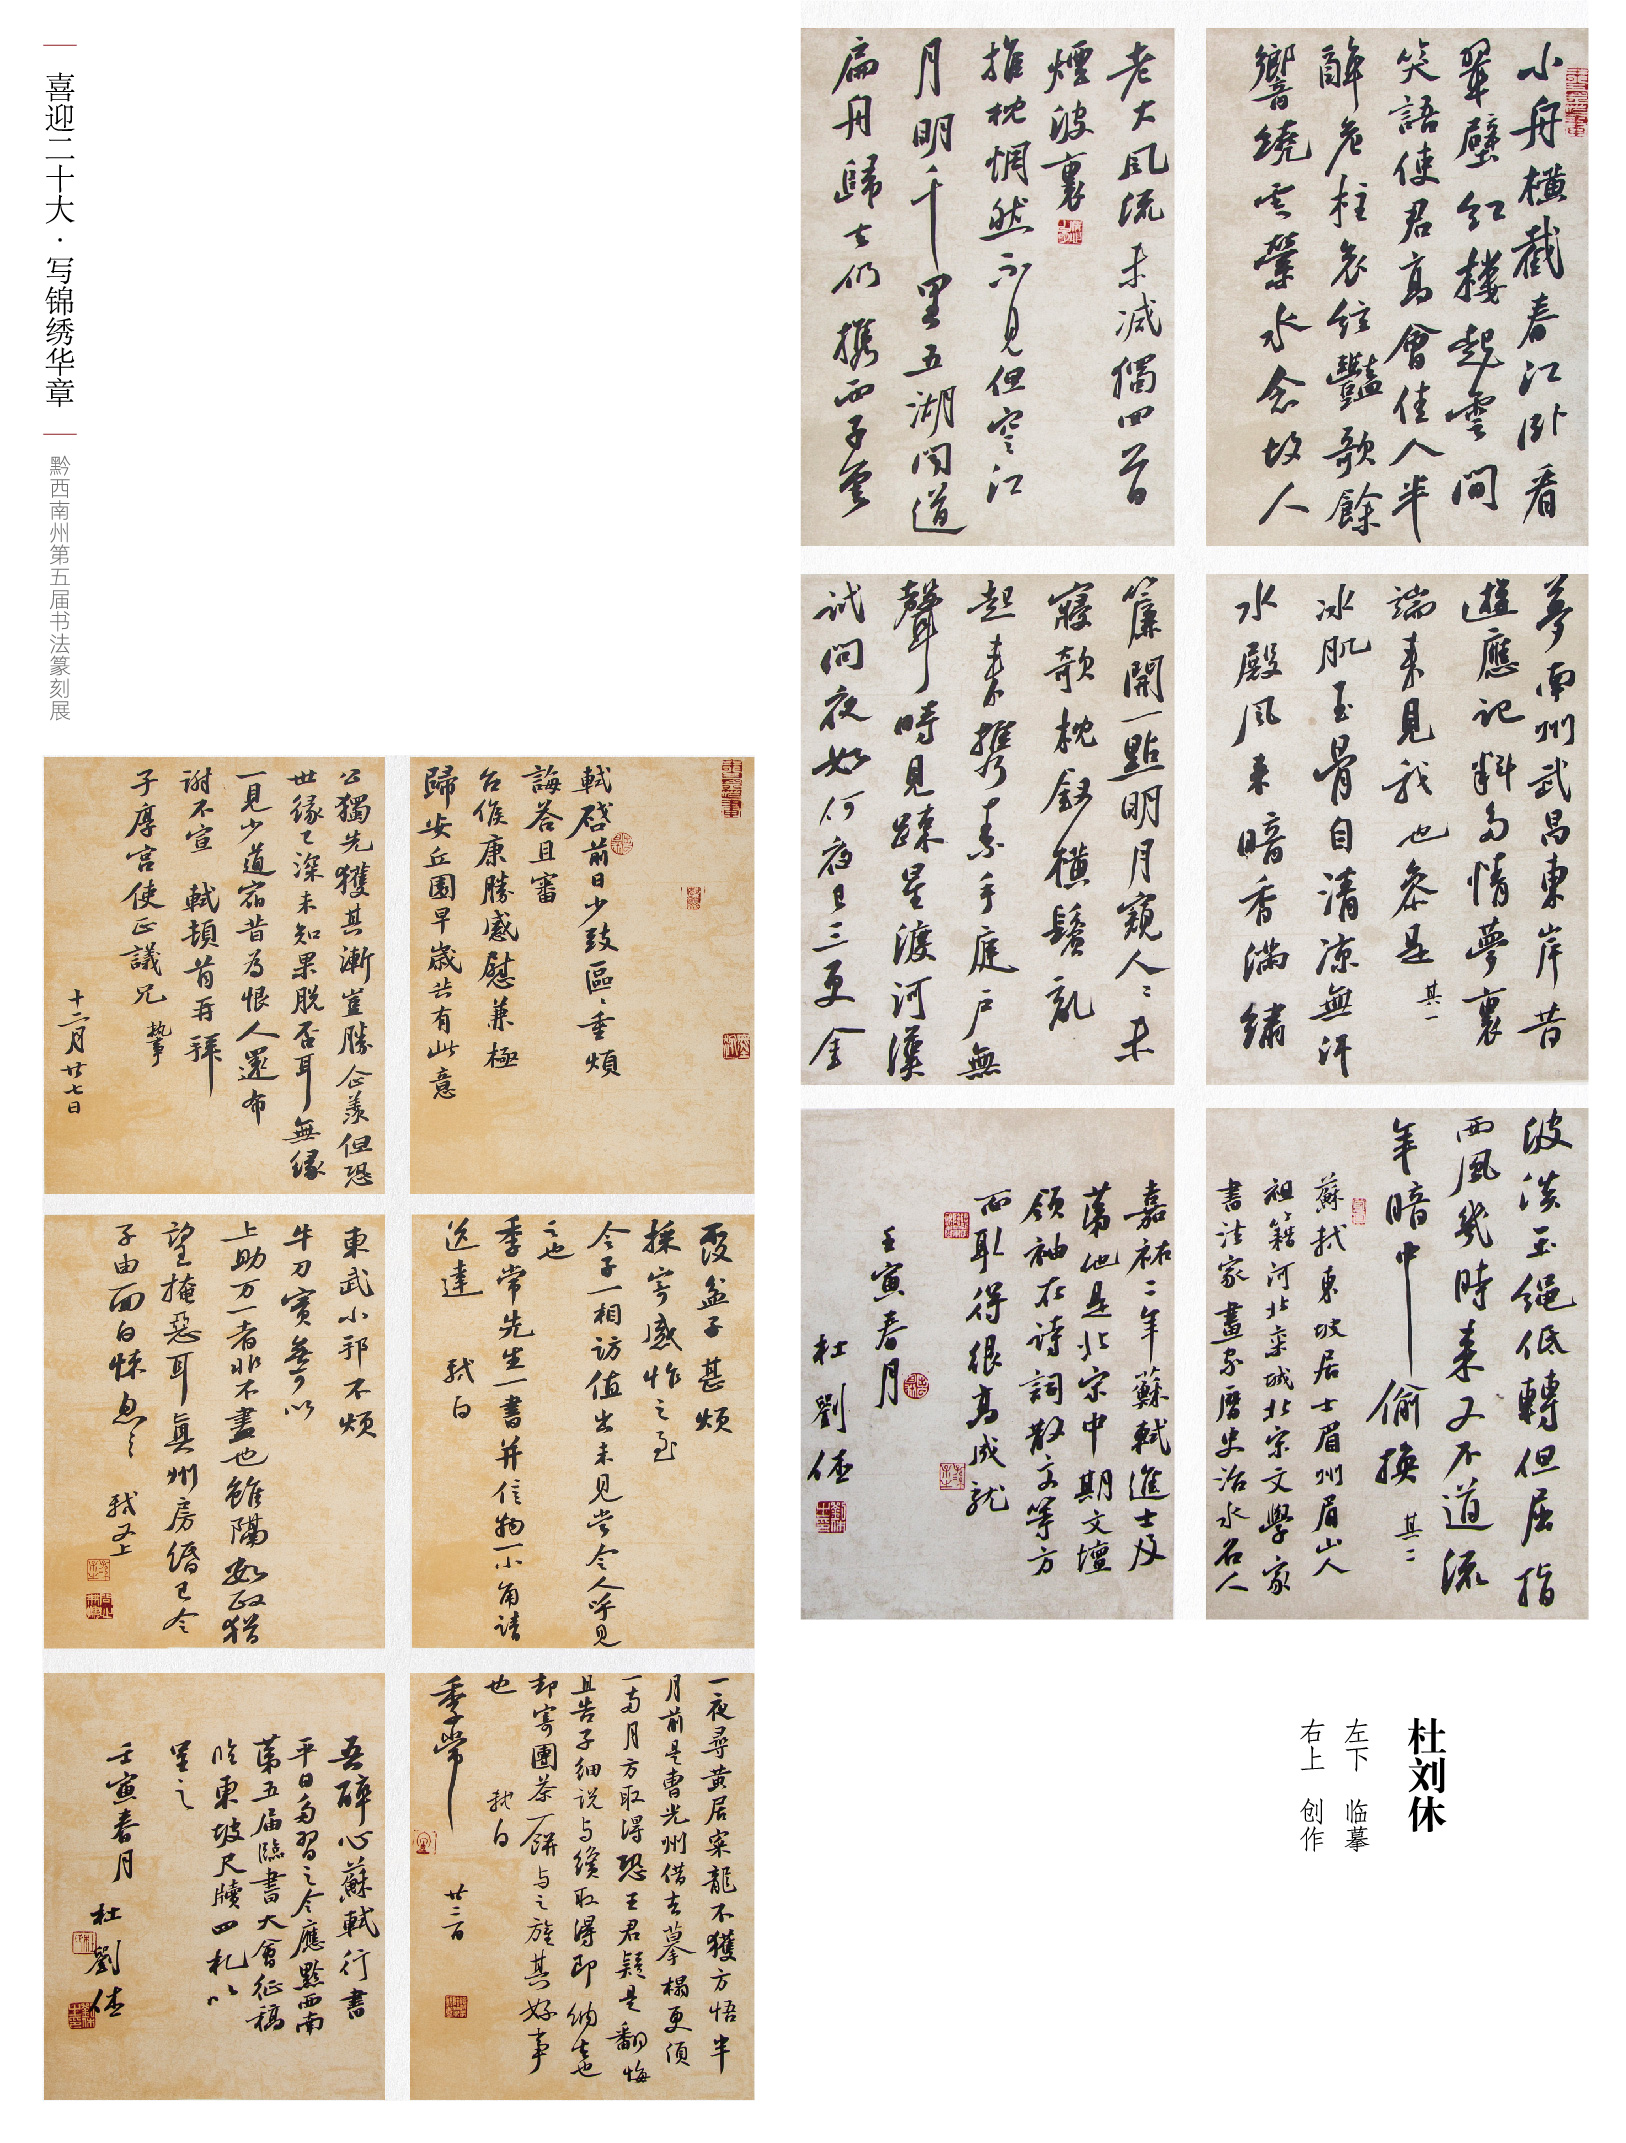 喜迎二十大·写锦绣华章
黔西南州第五届书法篆刻展
小舟橫截春江卧看
翠壁紅樓起雲間
笑語使君高會佳人半
酣危柱哀絃豔歌餘
響繞雲縈水念故人
老大風流未減獨回首
煙波裏
推枕惘然不見但空江
月明千里五湖聞道
扁舟歸去仍攜西子雲
夢南州武昌東岸昔
遊應記料多情夢裏
端来見我也參差是 其一
冰肌玉骨自清凉無汗
水殿風来暗香滿繡
簾開一點明月窺人人未
寢欹枕釵橫鬢亂
起来攜素手庭户無
聲時見疎星渡河漢
試問夜如何夜已三更金
波淡玉繩低轉但屈指
西風幾時来又不道流
年暗中偷換 其二
蘇軾東坡居士眉州眉山人
祖籍河北欒城北宋文學家
書法家畫家歷史治水名人
嘉祐二年蘇軾進士及
第他是北宋中期文壇
領袖在詩詞散文等方
面取得很高成就
壬寅春月
杜劉休
軾啓前日少致區區重煩
誨答且審
台候康勝感慰兼極
歸安丘園早歲共有此意
公獨先獲其漸豈勝企羨但恐
世緣已深未知果脱否耳無緣
一見少道宿昔為恨人還布
謝不宣 軾頓首再拜
子厚宫使正議兄 執事
十二月廿七日
覆盆子甚煩
採寄感怍之至
今子一相訪值出未見當令人呼見
之也
季常先生一書并信物一小角請
送達 軾白
東武小邦不煩
牛刀實無可以
上助万一者非不盡也雖隔數政猶
望掩惡耳真州房緡已令
子由面白悚息之 軾又上
一夜尋黄居寀龍不獲方悟半
月前是曹光州借去摹榻更須
一兩月方取得恐王君疑是翻悔
且告子細說与纔取得即納去也
却寄團茶一餅与之旌其好事
也 軾白
季常
廿三日
吾醉心蘇軾行書
平日多習之今應黔西南
第五届臨書大會征稿
臨東坡尺牘四札以
呈之
壬寅春月
杜劉休
杜刘休
左下 临摹
右上 创作